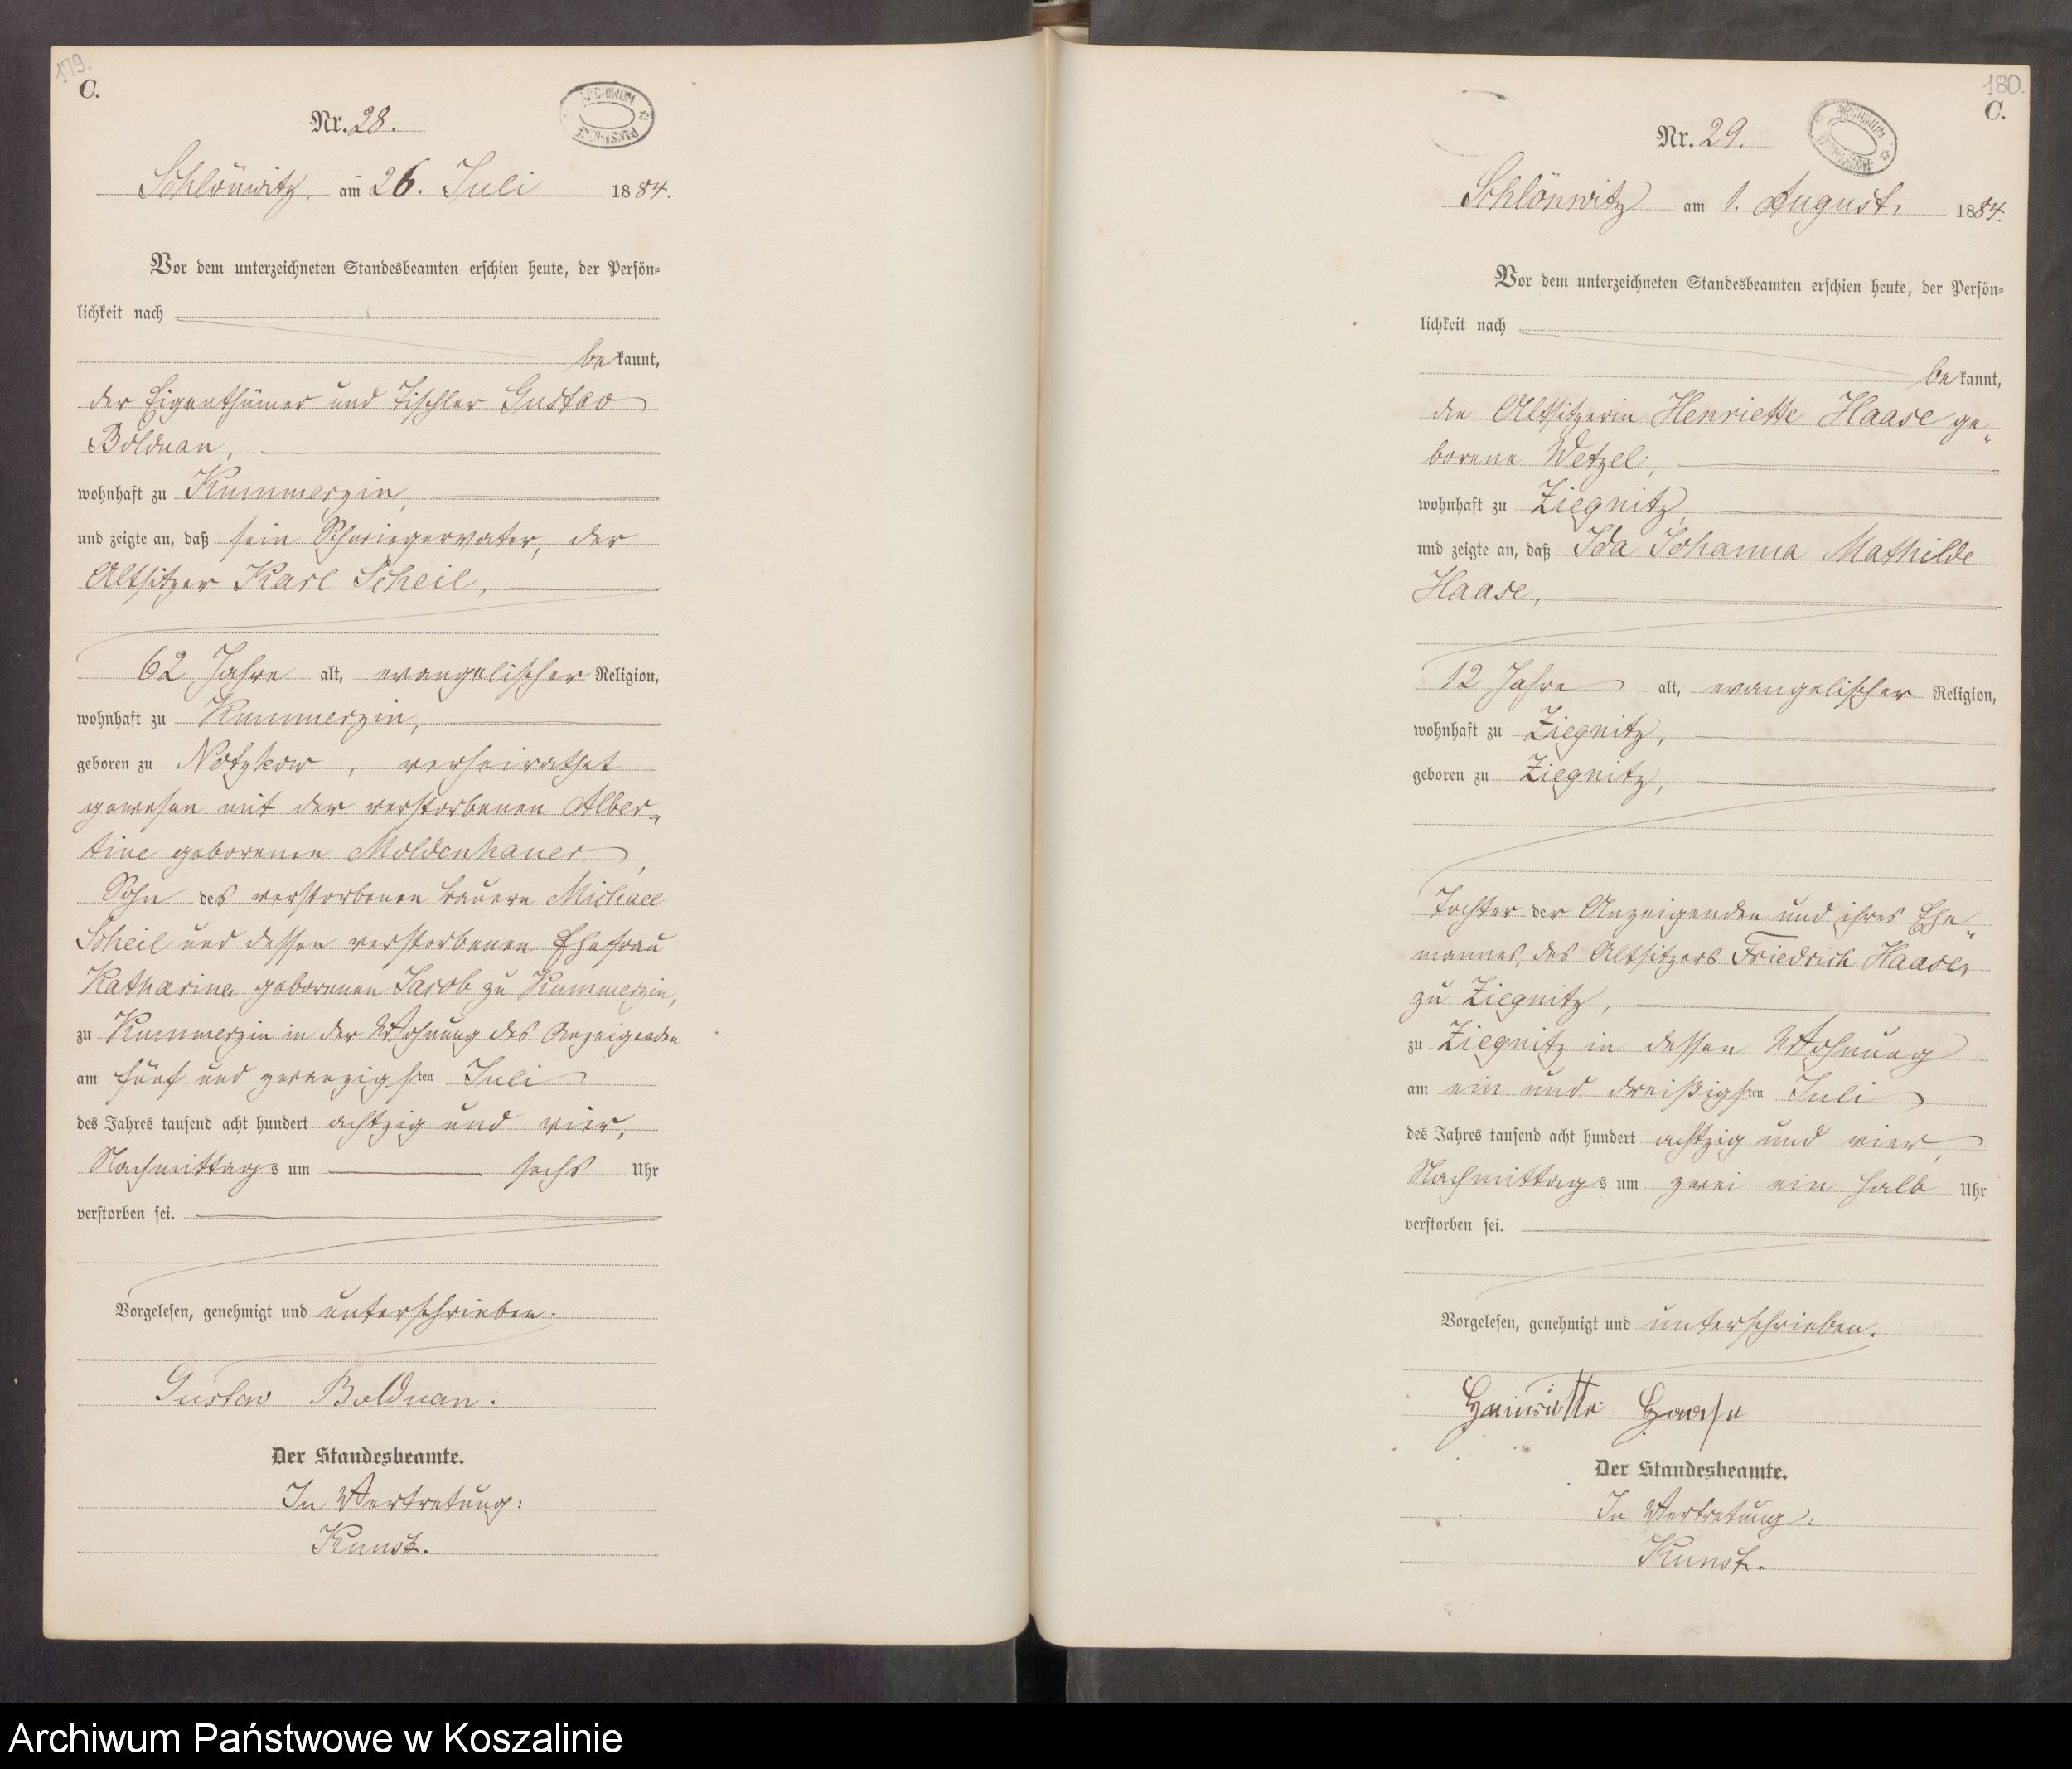 179.
C.
Nr. 28.
ARCHIWUM
Schlönwitz, am 26. Juli 1884.
Vor dem unterzeichneten Standesbeamten erschien heute, der Persön=
lichkeit nach
bekannt,
der Eigenthümer und Tischler Gustav
Bolduan,
wohnhaft zu Kummerzin,
und zeigte an, daß sein Schwiegervater, der
Altsitzer Karl Scheil,
62 Jahre alt, evangelischer Religion,
wohnhaft zu Kummerzin,
geboren zu Notzkow, verheirathet
gewesen mit der verstorbenen Alber„
tine geborenen Moldenhauer,
Sohn des verstorbenen Bauern Michael
Scheil und dessen verstorbenen Ehefrau
Katharina geborenen Jacob zu Kummerzin,
zu Kummerzin in der Wohnung des Anzeigenden
am fünf und zwanzigsten Juli
des Jahres tausend acht hundert achtzig und vier,
Nachmittags um sechs Uhr
verstorben sei.
Vorgelesen, genehmigt und unterschrieben.
Gustav Bolduan.
Der Standesbeamte.
In Vertretung:
Kunst.
180.
C.
Nr. 29.
ARCHIWUM
Schlönwitz am 1. August 1884.
Vor dem unterzeichneten Standesbeamten erschien heute, der Persön=
lichkeit nach
bekannt,
die Altsitzerin Henriette Haase ge„
borene Wetzel,
wohnhaft zu Ziegnitz,
und zeigte an, daß Ida Johanna Mathilde
Haase,
12 Jahre alt, evangelischer Religion,
wohnhaft zu Ziegnitz,
geboren zu Ziegnitz,
Tochter der Anzeigenden und ihres Ehe„
mannes, des Altsitzers Friedrich Haase,
zu Ziegnitz,
zu Ziegnitz in dessen Wohnung
am ein und dreißigsten Juli
des Jahres tausend acht hundert achtzig und vier,
Nachmittags um zwei ein halb Uhr
verstorben sei.
Vorgelesen, genehmigt und unterschrieben.
Henriette Haase
Der Standesbeamte.
In Vertretung:
Kunst.
Archiwum Państwowe w Koszalinie